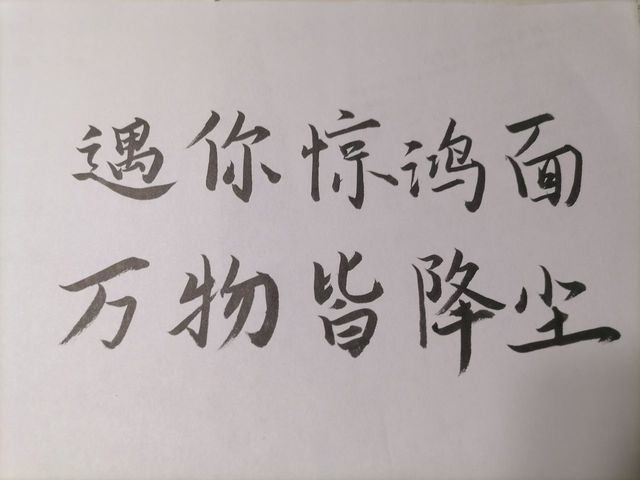 遇你惊鸿面
万物皆降尘